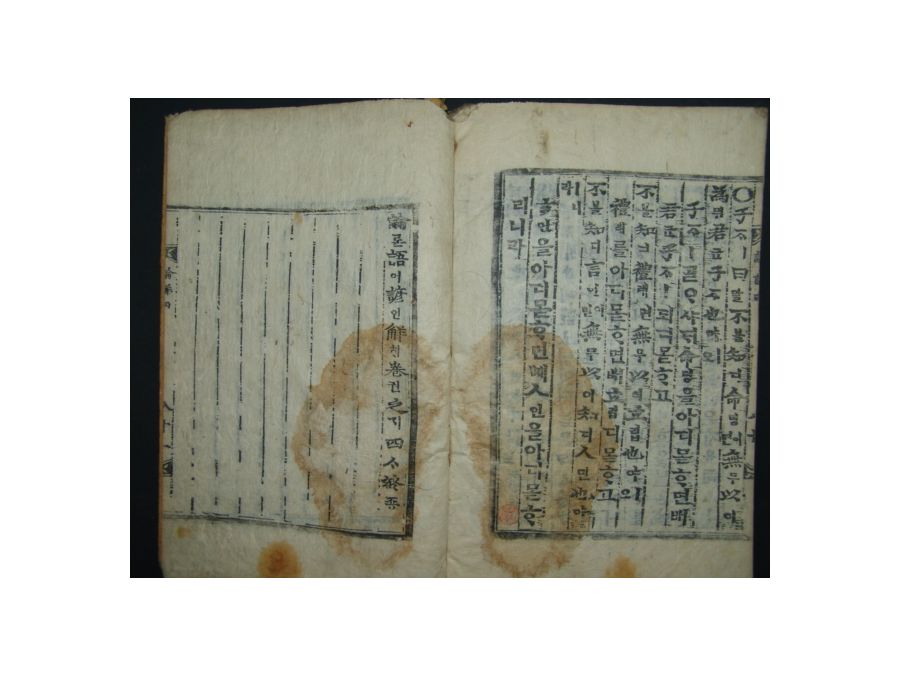 ○子ᄌᆞㅣ曰왈不블知디命명이면無무以이
爲위君군子ᄌᆞ也야ㅣ오
子ᄌᆞㅣᄀᆞᆯᄋᆞ샤ᄃᆡ命명을아디몯ᄒᆞ면ᄡᅥ
君군子ᄌᆞㅣ되디몯ᄒᆞ고
不블知디禮례면無무以이立립也야ㅣ오
禮례ᄅᆞᆯ아디몯ᄒᆞ면ᄡᅥ立립디몯ᄒᆞ고
不블知디言언이면無무以이知디人인也야
ㅣ니라
言언을아디몯ᄒᆞ면ᄡᅥ人인을아디몯ᄒᆞ
리니라
論론語어諺언解ᄒᆡ卷권之지四ᄉᆞ終죵